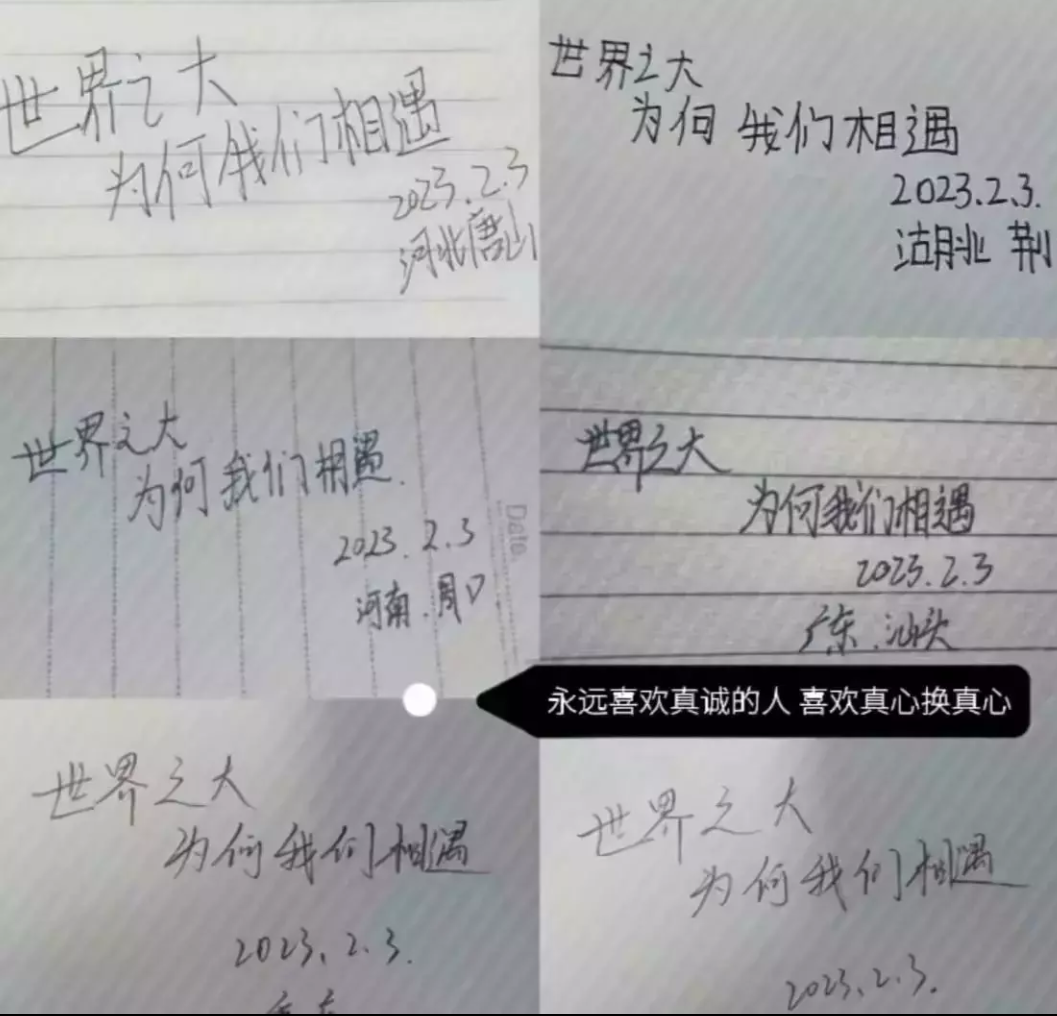 世界之大
为何我们相遇
2023.2.3
河北唐山
世界之大
为何我们相遇
2023.2.3.
湖北 荆
世界之大
为何我们相遇.
2023.2.3
河南.周口
Date.
世界之大
为何我们相遇
2023.2.3
广东.汕头
永远喜欢真诚的人 喜欢真心换真心
世界之大
为何我们相遇
2023.2.3.
世界之大
为何我们相遇
2023.2.3.